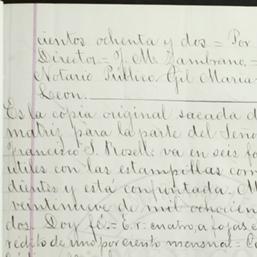 cientos ochenta y dos = Por
Director = J. M. Zambrano =
Notario Público. Gil Maria
Leon.
Es la copia original sacada d
matriz para la parte del Seño
Francisco J. Rosell: va en seis fo
utiles con las estampollas corr
dientes y esta confrontada. M
veintinueve de mil ochocien
dos. Doy fé. = E. r. cuatro, a fojas e
rédito de uno por ciento mensual = Co